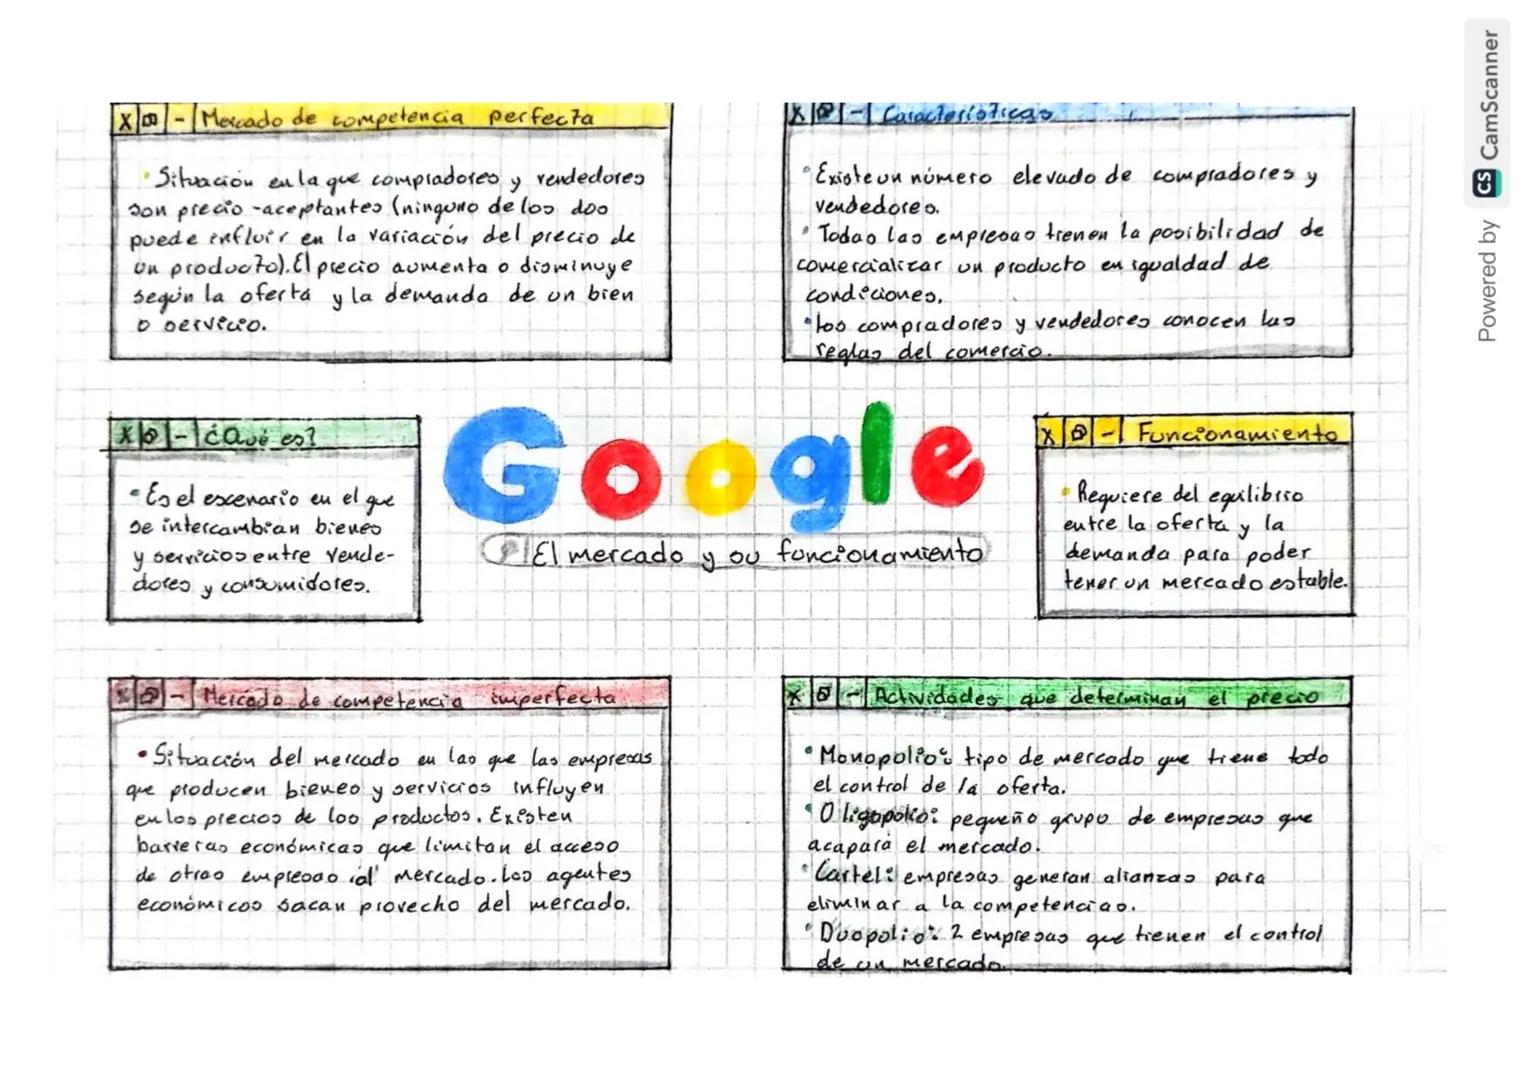 Mercado de competencia perfecta
• Situación en la que compradores y vendedores
son precio-aceptantes (ninguno de los dos
puede influir en la variación del precio de
un producto). El precio aumenta o disminuye
según la oferta y la demanda de un bien
o servicio.
Características
• Existe un número elevado de compradores y
vendedores.
• Todas las empresas tienen la posibilidad de
comercializar un producto en igualdad de
condiciones.
• Los compradores y vendedores conocen las
reglas del comercio.
¿Qué es?
• Es el escenario en el que
se intercambian bienes
y servicios entre vende-
dores y consumidores.
Google
El mercado y su funcionamiento
Funcionamiento
• Requiere del equilibrio
entre la oferta y la
demanda para poder
tener un mercado estable.
Mercado de competencia imperfecta
• Situación del mercado en las que las empresas
que producen bienes y servicios influyen
en los precios de los productos. Existen
barreras económicas que limitan el acceso
de otras empresas al mercado. Los agentes
económicos sacan provecho del mercado.
Actividades que determinan el precio
• Monopolio: tipo de mercado que tiene todo
el control de la oferta.
• Oligopolio: pequeño grupo de empresas que
acapara el mercado.
• Cartel: empresas generan alianzas para
eliminar a la competencias.
• Duopolio: 2 empresas que tienen el control
de un mercado.
Powered by CS CamScanner